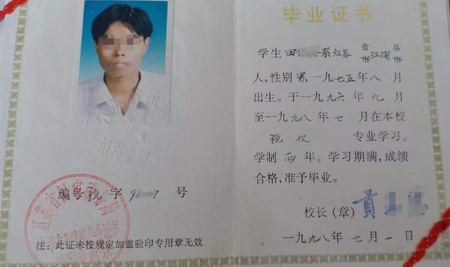 毕业证书
学生田 系江苏省江浦县
市 市
人，性别男，一九七五年八月
出生。于一九九六年九月
至一九九八年七月在本校
税收 专业学习。
学制两年。学习期满，成绩
合格，准予毕业。
校长（章）黄
一九九八年七月一日
编号税字9 号
注：此证未按规定加盖验印专用章无效